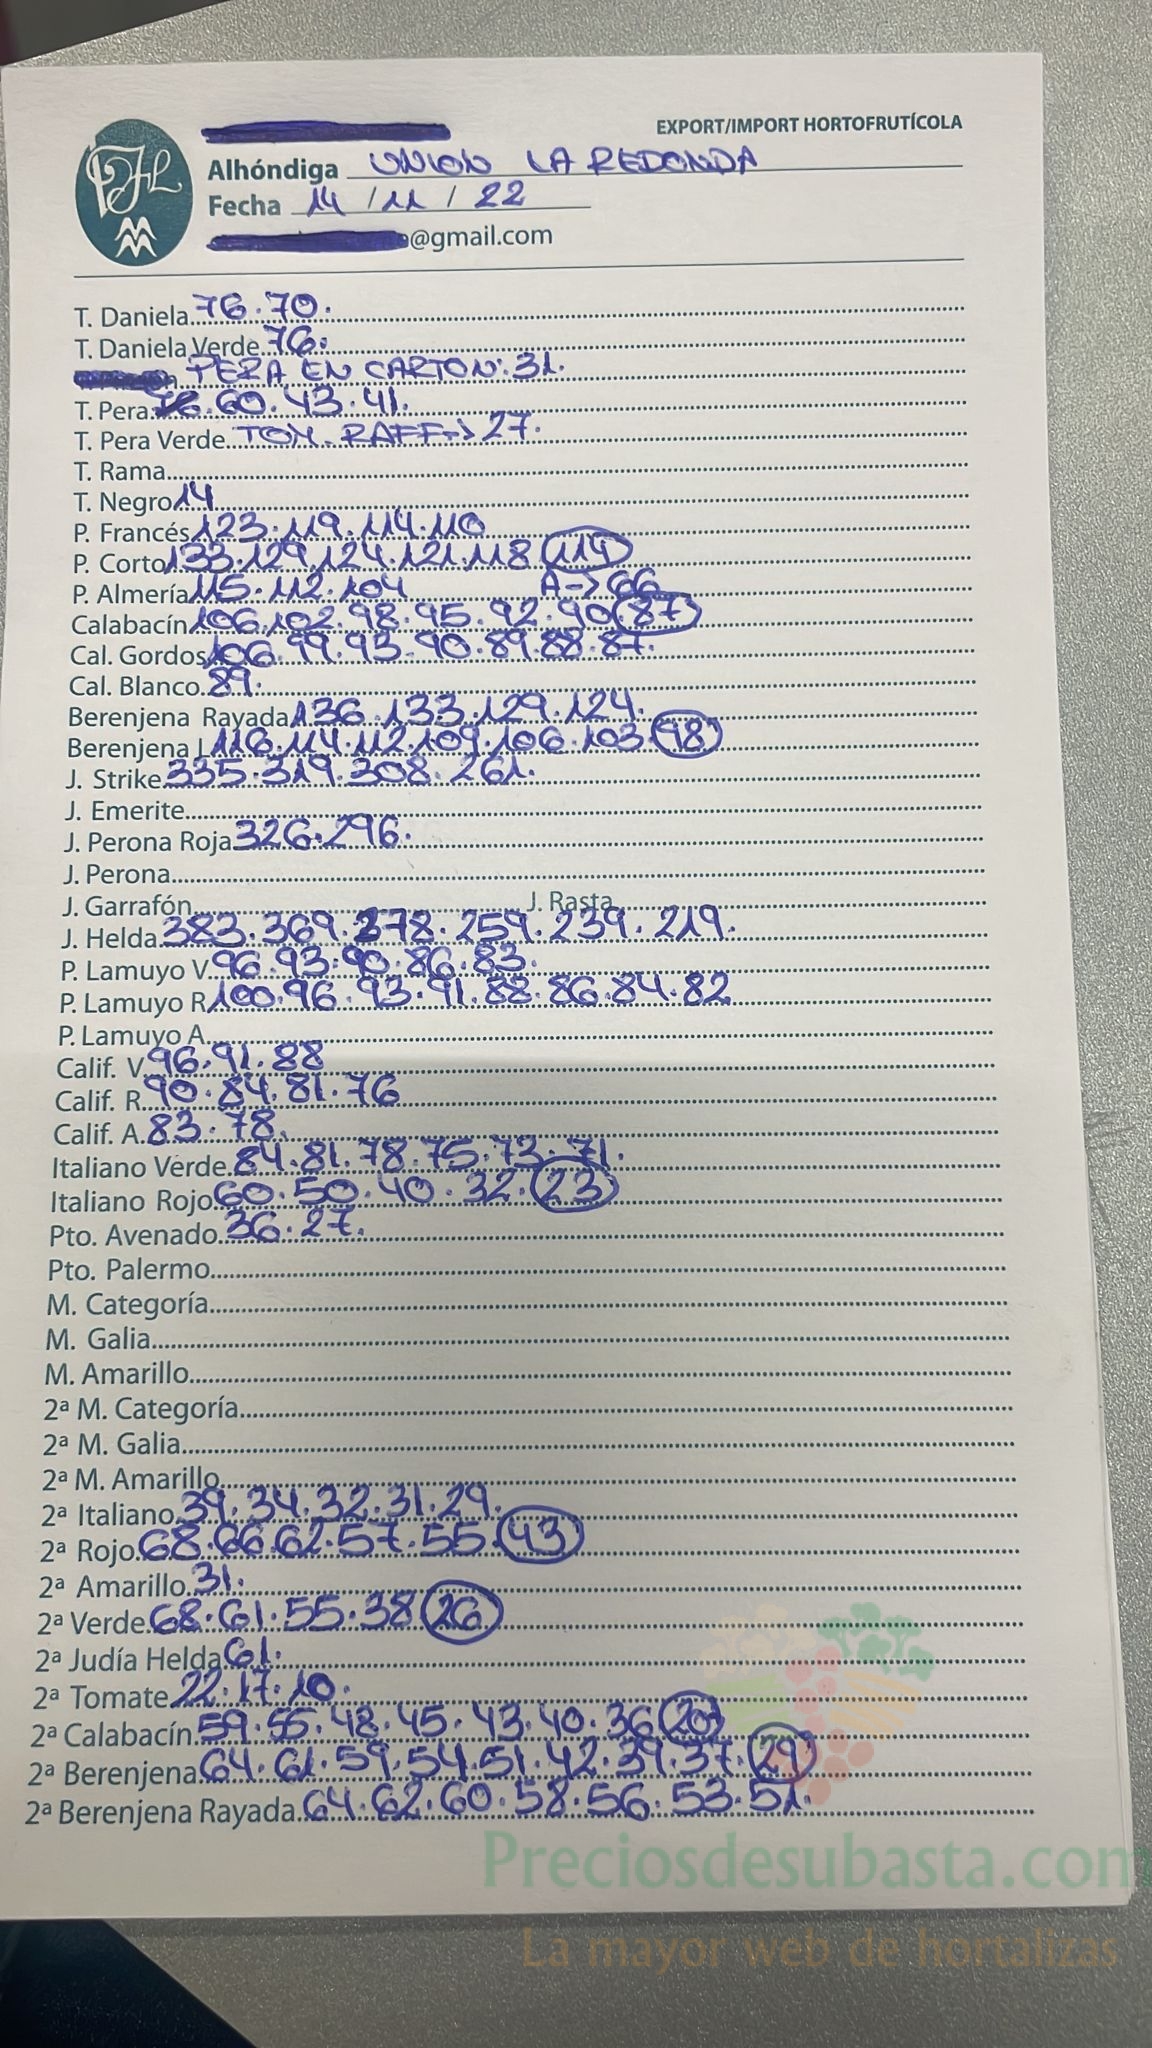 EXPORT/IMPORT HORTOFRUTÍCOLA
Alhóndiga UNION LA REDONDA
Fecha 14 / 11 / 22
@gmail.com
T. Daniela 76.70.
T. Daniela Verde 76.
PERA EN CARTON: 31.
T. Pera 60.43.41.
T. Pera Verde TOM. RAFF-> 27.
T. Rama
T. Negro 14
P. Francés 123.119.114.110
P. Corto 133.129.124.121.118 114
P. Almería 115.112.104 A->66
Calabacín 106.102.98.95.92.90 87
Cal. Gordos 106.99.93.90.89.88.87.
Cal. Blanco 89.
Berenjena Rayada 136.133.129.124.
Berenjena L 116.114.112.109.106.103. 98
J. Strike 335.319.308.261.
J. Emerite
J. Perona Roja 326.296.
J. Perona
J. Garrafón J. Rasta
J. Helda 383.369.278.259.239.219.
P. Lamuyo V. 96.93.90.86.83.
P. Lamuyo R 100.96.93.91.88.86.84.82
P. Lamuyo A
Calif. V. 96.91.88
Calif. R. 90.84.81.76
Calif. A. 83.78.
Italiano Verde 84.81.78.75.73.71.
Italiano Rojo 60.50.40.32. 23
Pto. Avenado 36.27.
Pto. Palermo
M. Categoría
M. Galia
M. Amarillo
2ª M. Categoría
2ª M. Galia
2ª M. Amarillo
2ª Italiano 39.34.32.31.29.
2ª Rojo 68.66.62.57.55. 43
2ª Amarillo 31.
2ª Verde 68.61.55.38 26
2ª Judía Helda 61.
2ª Tomate 22.17.10.
2ª Calabacín 59.55.48.45.43.40.36 20
2ª Berenjena 64.61.59.54.51.42.39.37. 29
2ª Berenjena Rayada 64.62.60.58.56.53.51.
Preciosdesubasta.com
La mayor web de hortalizas